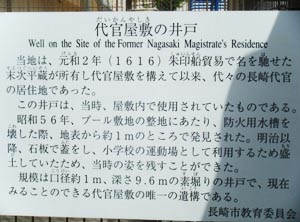 だいかんやしき
代官屋敷の井戸
Well on the Site of the Former Nagasaki Magistrate's Residence
当地は、元和2年（1616）朱印船貿易で名を馳せた
末次平蔵が所有し代官屋敷を構えて以来、代々の長崎代官
の居住地であった。
この井戸は、当時、屋敷内で使用されていたものである。
昭和56年、プール敷地の整地にあたり、防火用水槽を
壊した際、地表から約1mのところで発見された。明治以
降、石板で蓋をし、小学校の運動場として利用するため盛
土していたため、当時の姿を残すことができた。
規模は口径約1m、深さ9.6mの素掘りの井戸で、現在
みることのできる代官屋敷の唯一の遺構である。
長崎市教育委員会